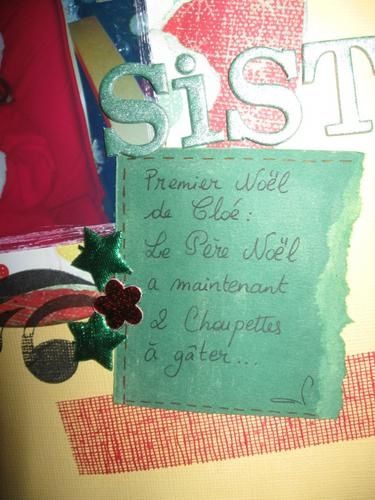 SiST
Premier Noël
de Cloé :
Le Père Noël
a maintenant
2 Choupettes
à gâter...